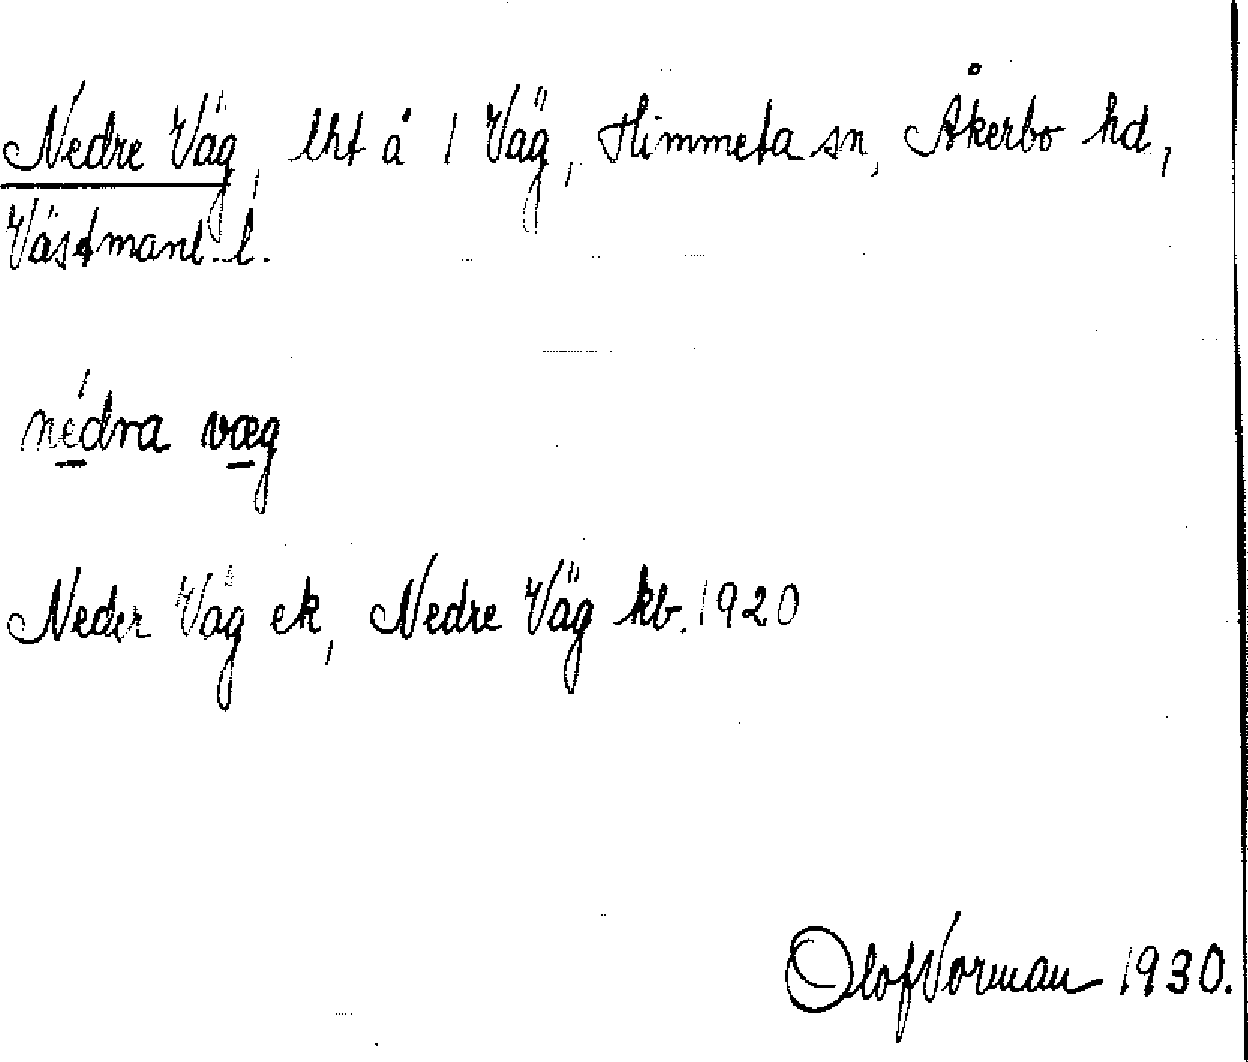 Nedre Väg, lht å 1 Väg, Himmeta sn, Åkerbo hd,
Västmanl. l.
nédra væg
Neder Väg ek, Nedre Väg kb. 1920
Olof Vorman 1930.